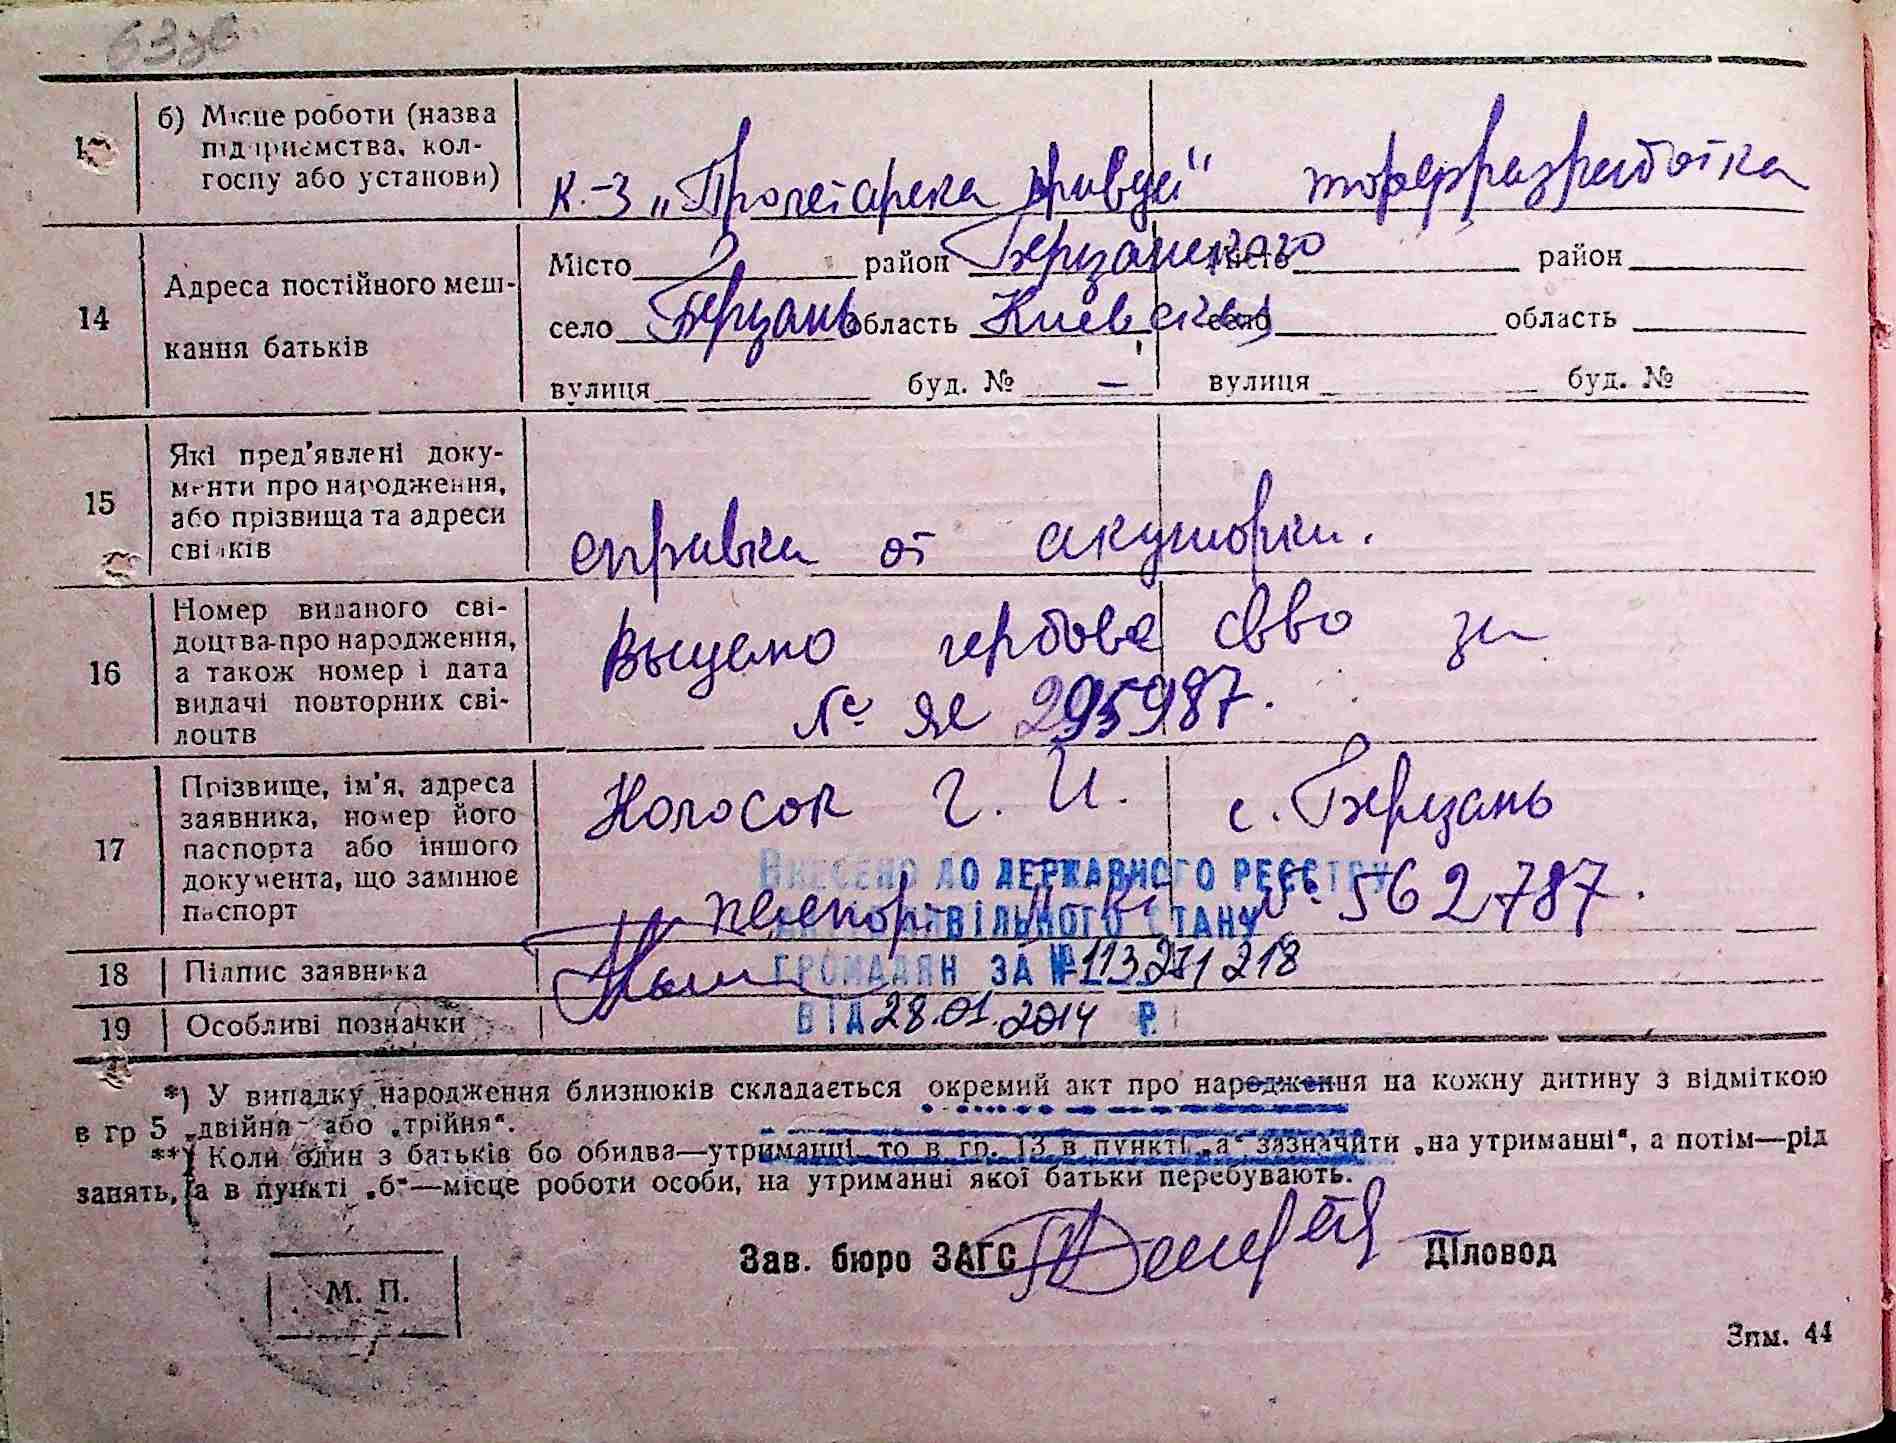 633б
1
б) Місце роботи (назва
підприємства, кол-
госпу або установи)
к-з „Пролетарська правда" торфразработка
14
Адреса постійного меш-
кання батьків
Місто район Березанского Місто район
село Березань область Киевская село область
вулиця буд. № — вулиця буд. №
15
Які пред'явлені доку-
менти про народження,
або прізвища та адреси
свідків
справка от акушорки.
16
Номер виданого сві-
доцтва про народження,
а також номер і дата
видачі повторних сві-
доцтв
Выдано гербове свво за
№ ЯЕ 295987.
17
Прізвище, ім'я, адреса
заявника, номер його
паспорта або іншого
документа, що замінює
паспорт
Колосок Г. И. с. Березань
паспорт № 562787.
ВНЕСЕНО ДО ДЕРЖАВНОГО РЕЄСТРУ
ЦИВІЛЬНОГО СТАНУ
ГРОМАДЯН ЗА № 113271218
ВІД 28.01.2014 Р.
18 Підпис заявника
19 Особливі позначки
*) У випадку народження близнюків складається окремий акт про народження на кожну дитину з відміткою
в гр 5 „двійня" або „трійня".
**) Коли один з батьків бо обидва—утриманці, то в гр. 13 в пункті „а" зазначити „на утриманні", а потім—рід
занять, а в пункті „б"—місце роботи особи, на утриманні якої батьки перебувають.
Зав. бюро ЗАГС Діловод
М. П.
Зам. 44